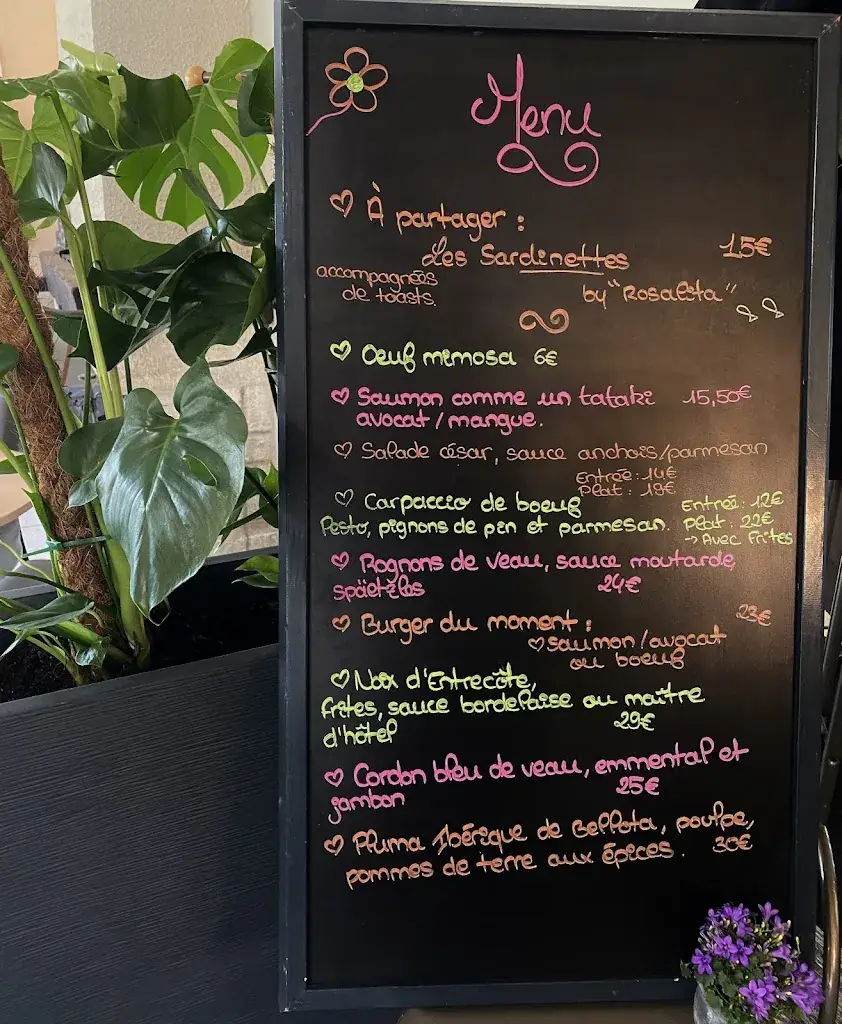 Menu
À partager :
Les Sardinettes 15€
accompagnées
de toasts.
by "Rosalita"
Oeuf mimosa 6€
Saumon comme un tataki 15,50€
avocat/mangue.
Salade césar, sauce anchois/parmesan
Entrée : 14€
Plat : 19€
Carpaccio de boeuf Entrée : 12€
Pesto, pignons de pin et parmesan. Plat : 22€
→ Avec Frites
Rognons de veau, sauce moutarde,
Späetzles 24€
Burger du moment : 23€
Saumon/avocat
ou boeuf
Noix d'Entrecôte,
frites, sauce bordelaise ou maître
d'hôtel 29€
Cordon bleu de veau, emmental et
jambon 25€
Pluma Ibérique de Bellota, poulpe,
pommes de terre aux épices. 30€